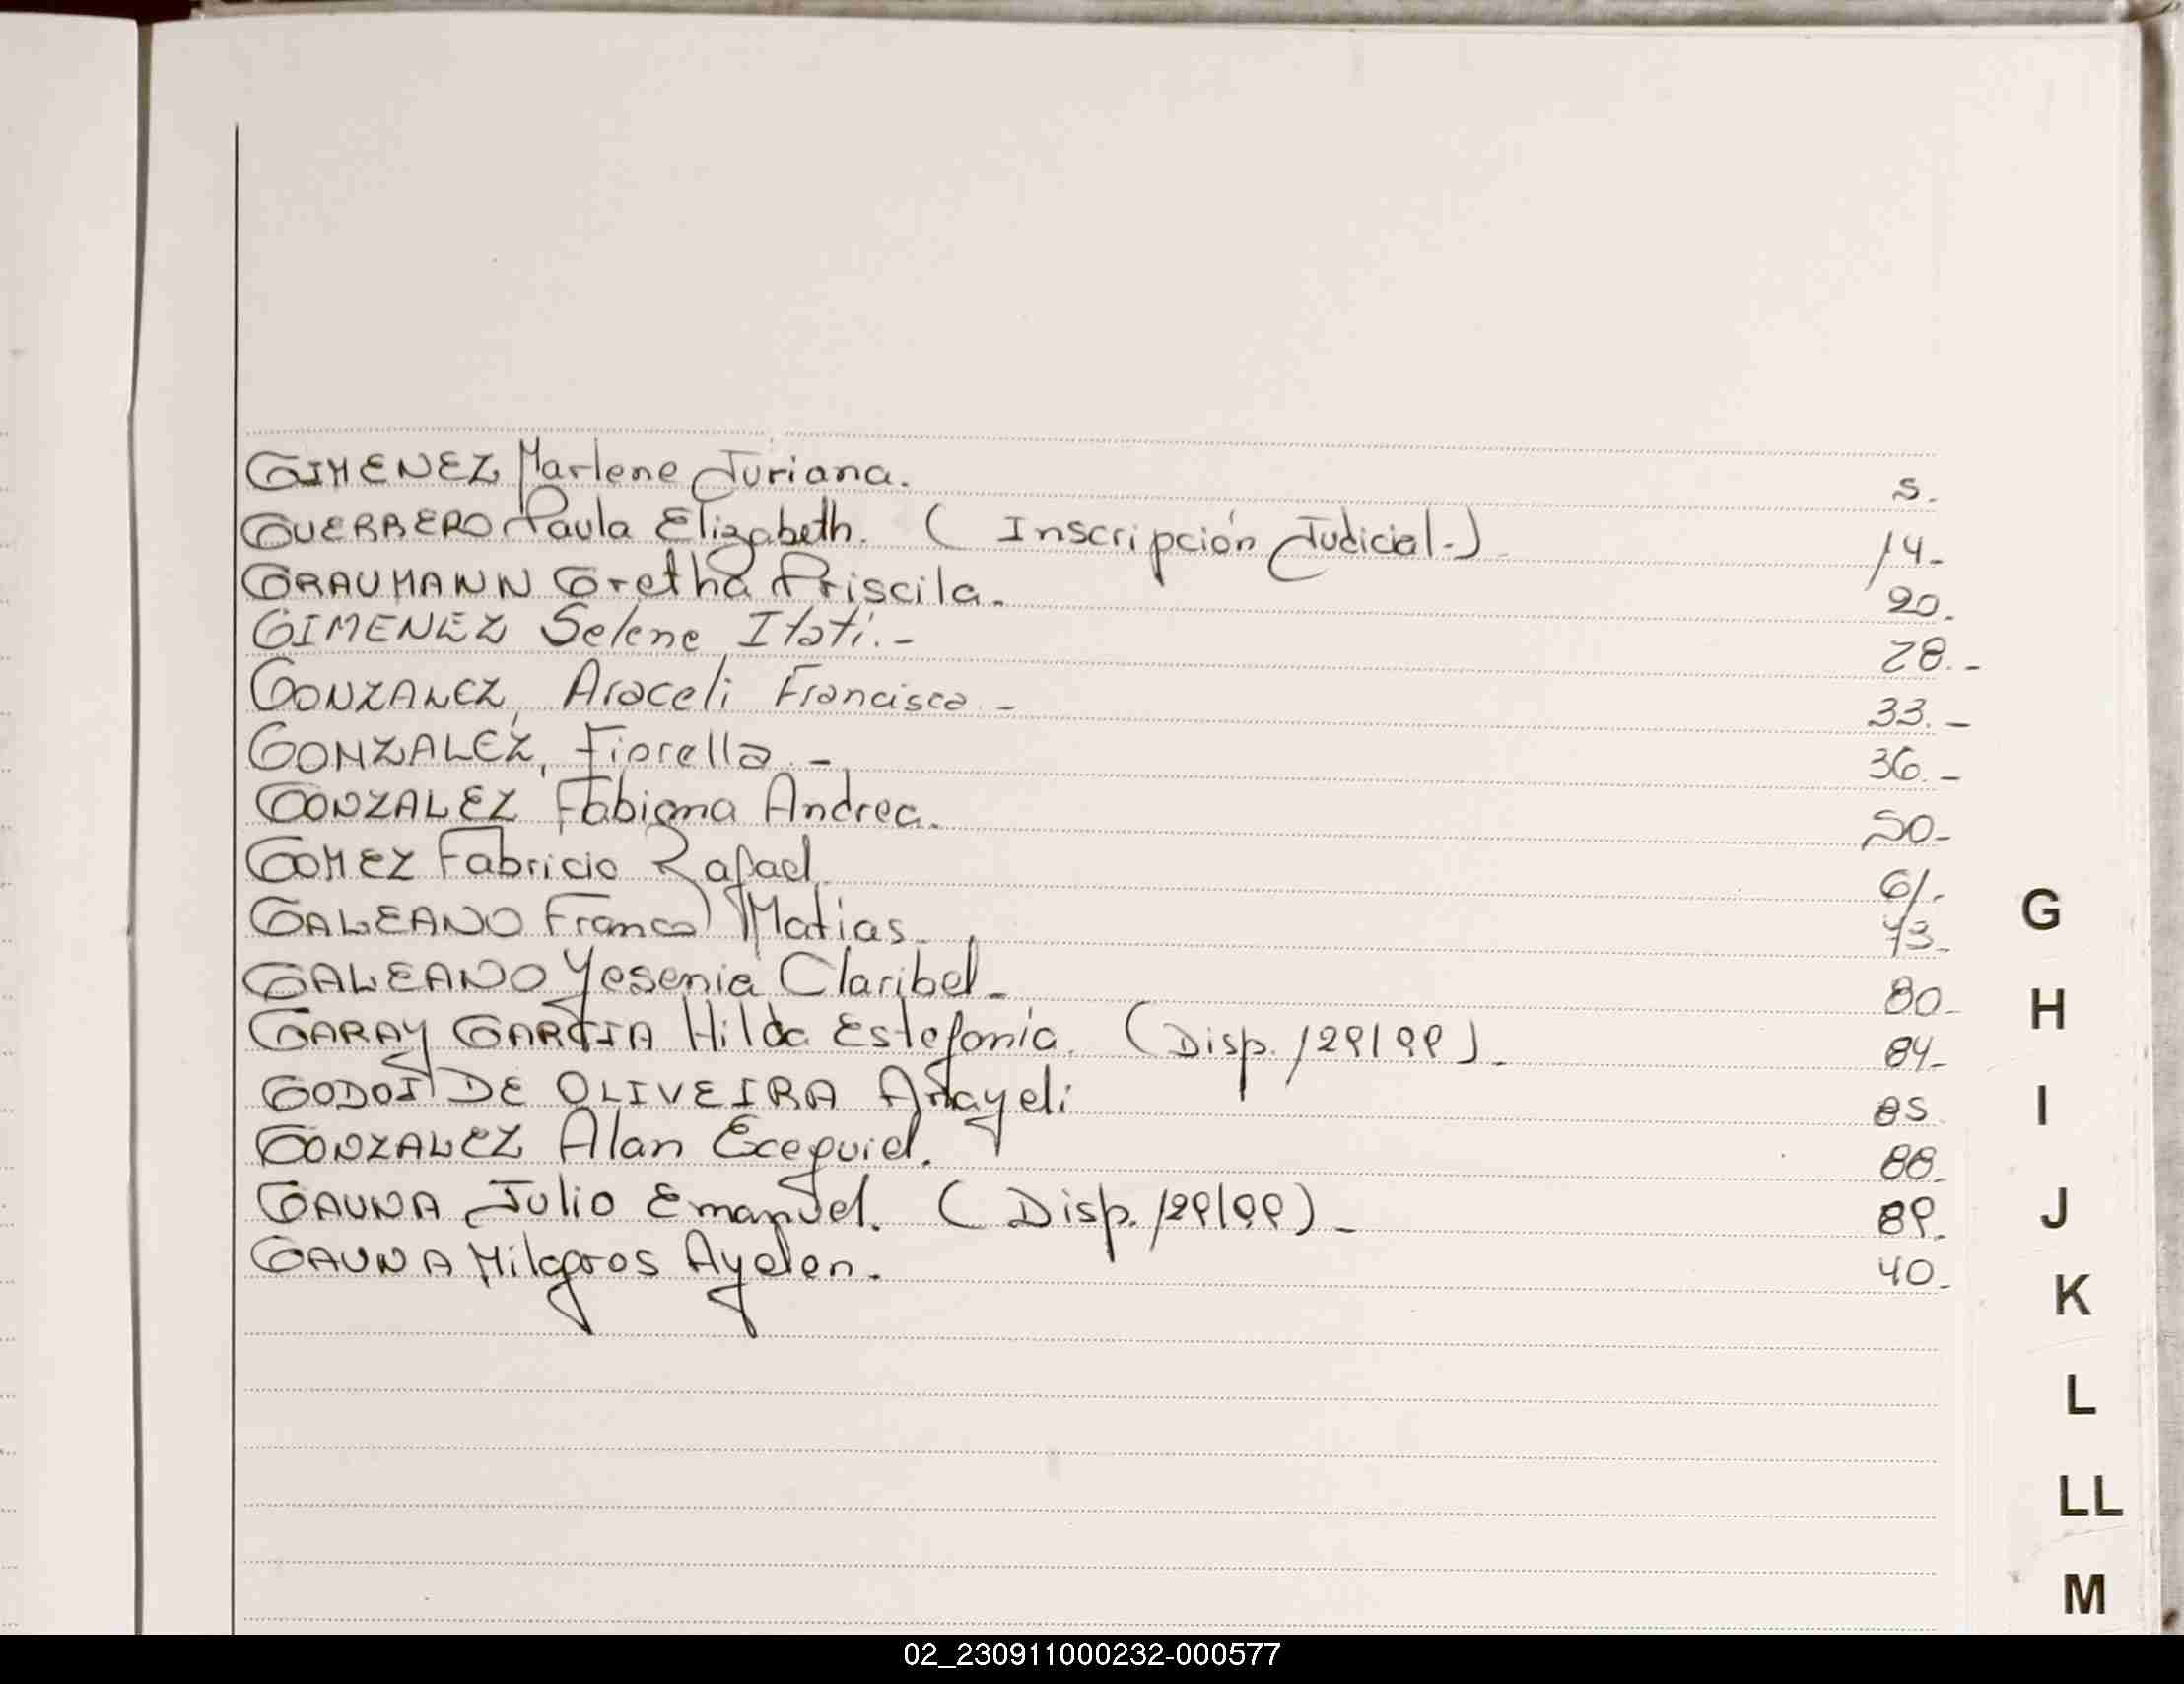 GIMENEZ Marlene Juriana. 5.
GUERRERO Paula Elizabeth. (Inscripción Judicial.-) 14-
GRAUMANN Gretha Priscila. 20.
GIMENEZ Selene Itatí.- 28.-
GONZALEZ, Araceli Francisca.- 33.-
GONZALEZ, Fiorella.- 36.-
GONZALEZ Fabiana Andrea. 50-
GOMEZ Fabricio Rafael. 61.-
GALEANO Franco Matias. 73.
GALEANO Yesenia Claribel- 80-
GARAY GARCIA Hilda Estefania. (Disp. 129/99)- 84-
GODOI DE OLIVEIRA Anayeli 85.
GONZALEZ Alan Ecequiel. 88.
GAUNA Julio Emanuel. (Disp. 129/99)- 89.
GAUNA Milagros Ayelen. 40-
G
H
I
J
K
L
LL
M
02_230911000232-000577